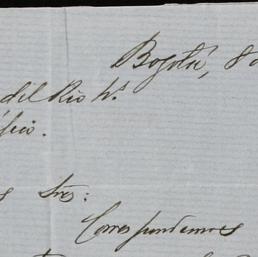 Bogotá, 8 d
del Rio hs.
cio.
s Sres:
Correspondemos